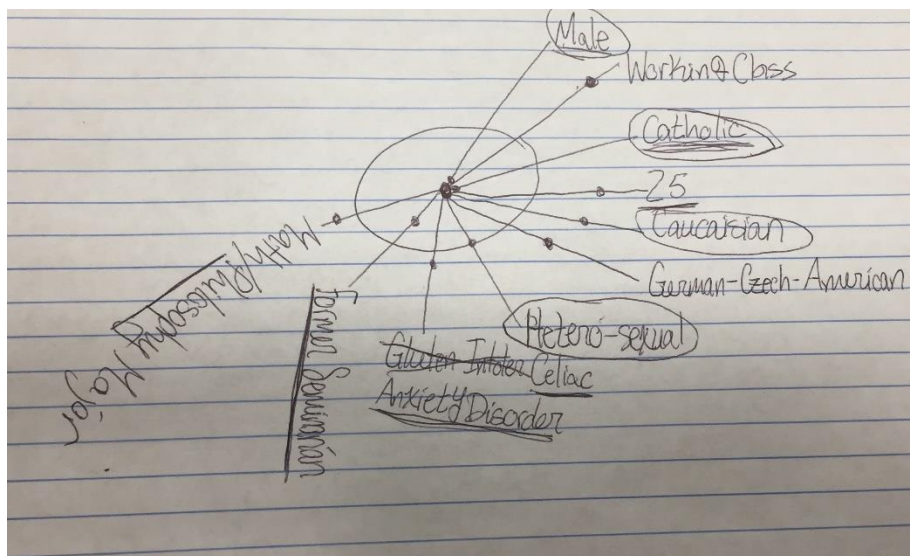 Male
Working Class
Catholic
25
Caucaisian
German-Czech-American
Hetero-sexual
Gluten Intoler Celiac
Anxiety Disorder
Former Seminarian
Math/Philosophy Major